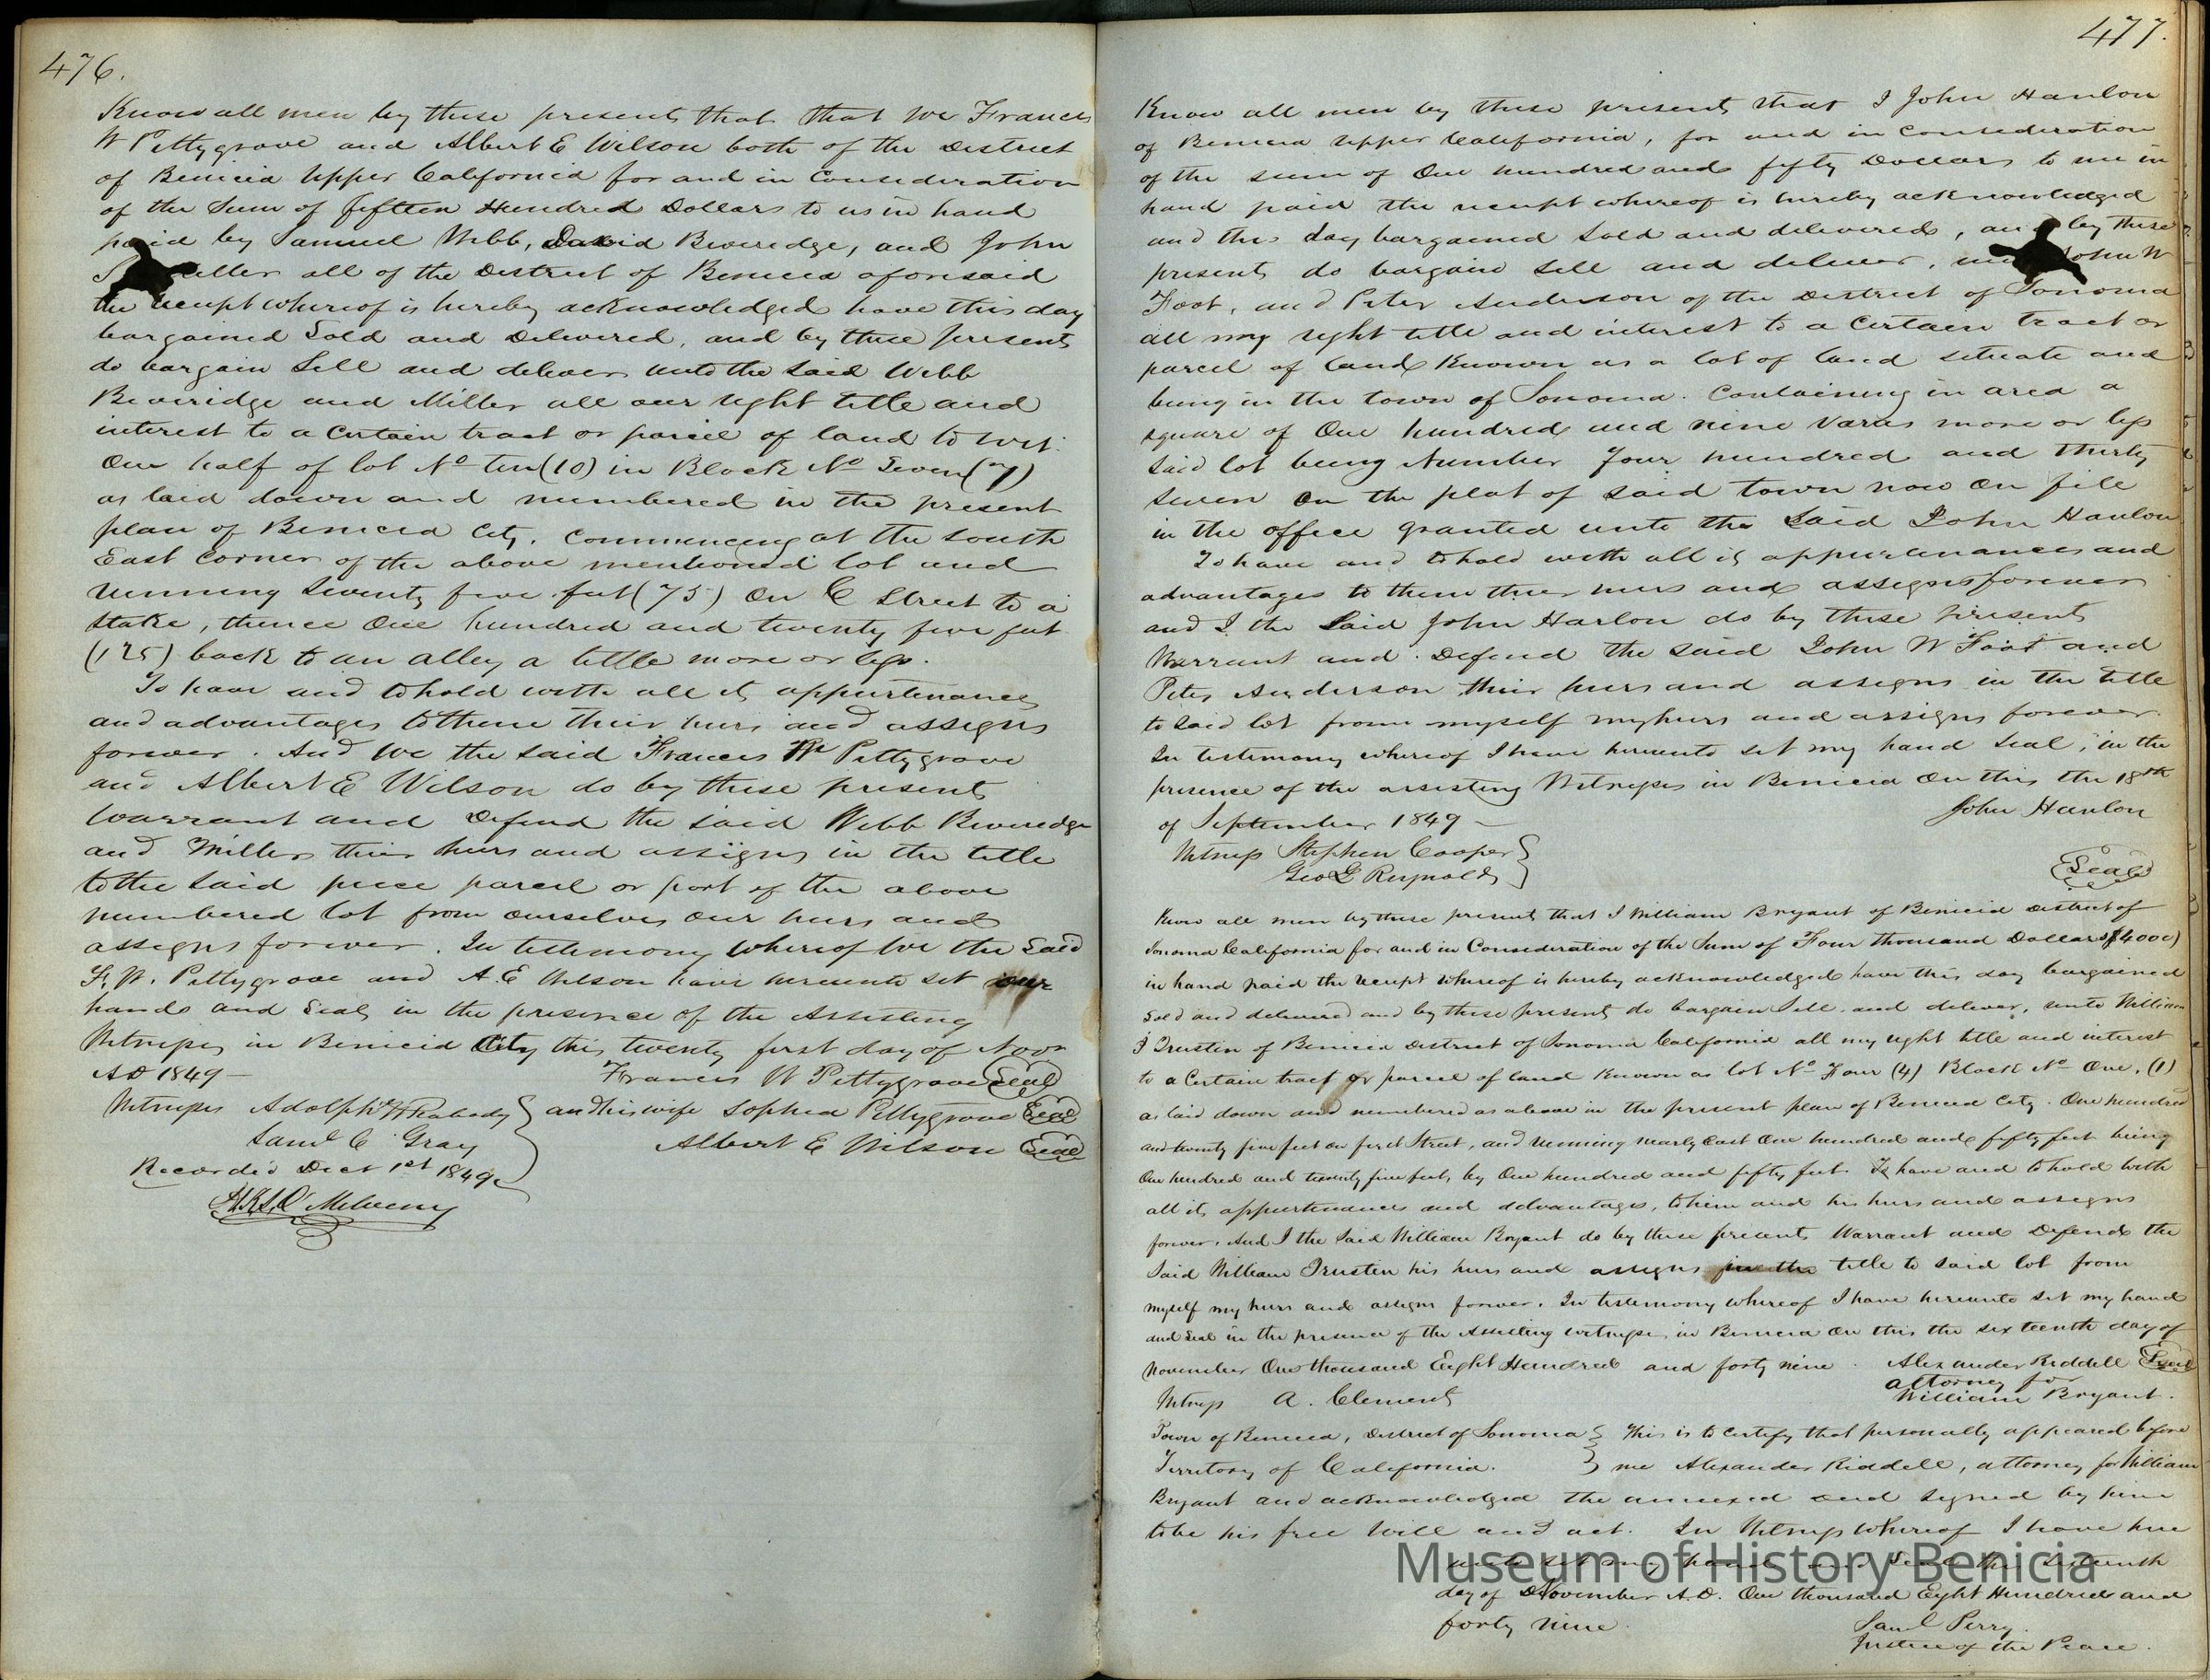 476.
Know all men by these presents that that we Francis
W Pettygrove and Albert E Wilson both of the District
of Benicia Upper California for and in Consideration
of the Sum of fifteen Hundred Dollars to us in hand
paid by Samuel Webb, David Beveredge, and John
all of the District of Benicia aforesaid
the receipt whereof is hereby acknowledged have this day
bargained Sold and Delivered, and by these presents
do bargain Sell and deliver unto the said Webb
Beveridge and Miller all our right title and
interest to a Certain tract or parcel of land to wit.
One half of lot No ten (10) in Block No Seven (7)
as laid down and numbered in the present
plan of Benicia City. Commencing at the South
East Corner of the above mentioned lot and
running Seventy five feet (75) On C Street to a
stake, thence One hundred and twenty five feet
(125) back to an alley a little more or less.
To have and to hold with all its appurtenances
and advantages to them their heirs and assigns
forever. And we the said Francis W Pettygrove
and Albert E Wilson do by these presents
warrant and Defend the said Webb Beveredge
and Miller their heirs and assigns in the title
to the said piece parcel or part of the above
numbered lot from ourselves our heirs and
assigns forever. In testimony whereof we the Said
F. W. Pettygrove and A. E Wilson have hereunto set our
hands and Seals in the presence of the Assisting
Witnesses in Benicia City this twenty first day of Novr
AD 1849 — Francis W Pettygrove Seal
Witnesses Adolphs W Peabody and his wife Sophia Pettygrove Seal
Saml C Gray Albert E Wilson Seal
Recorded Dect 1st 1849.
477.
Know all men by these presents that I John Hanlon
of Benicia Upper California, for and in Consideration
of the sum of One hundred and fifty Dollars to me in
hand paid the receipt whereof is hereby acknowledged
and this day bargained Sold and delivered, and by these
presents do bargain sell and deliver, John W
Foot, and Peter Anderson of the District of Sonoma
all my right title and interest to a Certain tract or
parcel of land Known as a lot of land situate and
being in the town of Sonoma. Containing in area a
square of One hundred and nine Varas more or less
said lot being Number Four hundred and thirty
seven On the plat of said town now on file
in the office granted unto the said John Hanlon
To have and to hold with all its appurtenances and
advantages to them their heirs and assigns forever
and I the Said John Harlon do by these presents
Warrant and Defend the said John W Foot and
Peter Anderson their heirs and assigns in the title
to said lot from myself my heirs and assigns forever.
In testimony whereof I have hereunto set my hand Seal, in the
presence of the assisting Witnesses in Benicia On this the 18th
of September 1849 — John Hanlon
Witness Stephen Cooper
Geo L Reynolds Seal
Know all men by these presents that I William Bryant of Benicia District of
Sonoma California for and in Consideration of the Sum of Four thousand Dollars ($4000)
in hand paid the receipt whereof is hereby acknowledged have this day bargained
Sold and delivered and by these presents do bargain Sell and deliver, unto William
J Trustin of Benicia District of Sonoma California all my right title and interest
to a Certain tract or parcel of land Known as lot No Four (4) Block No One, (1)
as laid down and numbered as above in the present plan of Benicia City. One hundred
and twenty five feet on first Street, and running nearly East One hundred and fifty feet being
One hundred and twenty five feet, by One hundred and fifty feet. To have and to hold with
all its appurtenances and advantages, to him and his heirs and assigns
forever. And I the Said William Bryant do by these presents Warrant and Defend the
Said William Trustin his heirs and assigns in the title to said lot from
myself my heirs and assigns forever. In testimony whereof I have hereunto set my hand
and Seal in the presence of the Assisting witnesses in Benicia On this the sixteenth day of
November One thousand Eight Hundred and forty nine. Alexander Riddell Seal
attorney for
Witness A. Clements William Bryant.
Town of Benicia, District of Sonoma This is to Certify that personally appeared before
Territory of California. me Alexander Riddell, attorney for William
Bryant and acknowledged the annexed deed signed by him
to be his free will and act. In Witness Whereof I have here
unto set my hand and Seal this Sixteenth
day of November A.D. One thousand Eight Hundred and
forty nine. Saml Perry.
Justice of the Peace.
Museum of History Benicia